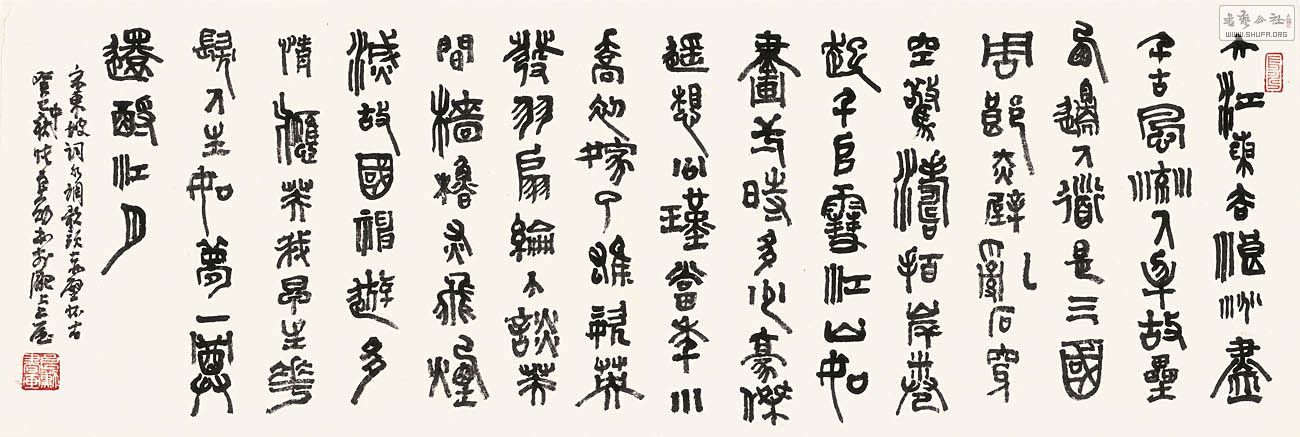 书艺公社
WWW.SHUFA.ORG
大江東去浪沙盡
千古風流人物故壘
西邊人道是三國
周郎赤壁亂石穿
空驚濤拍岸卷
起千堆雪江山如
畫一時多少豪傑
遥想公瑾當年小
喬初嫁了雄姿英
發羽扇綸巾談笑
間檣櫓灰飛煙
滅故國神遊多
情應笑我早生華
髮人生如夢一尊
還酹江月
宋東坡詞水調歌頭赤壁怀古
癸巳